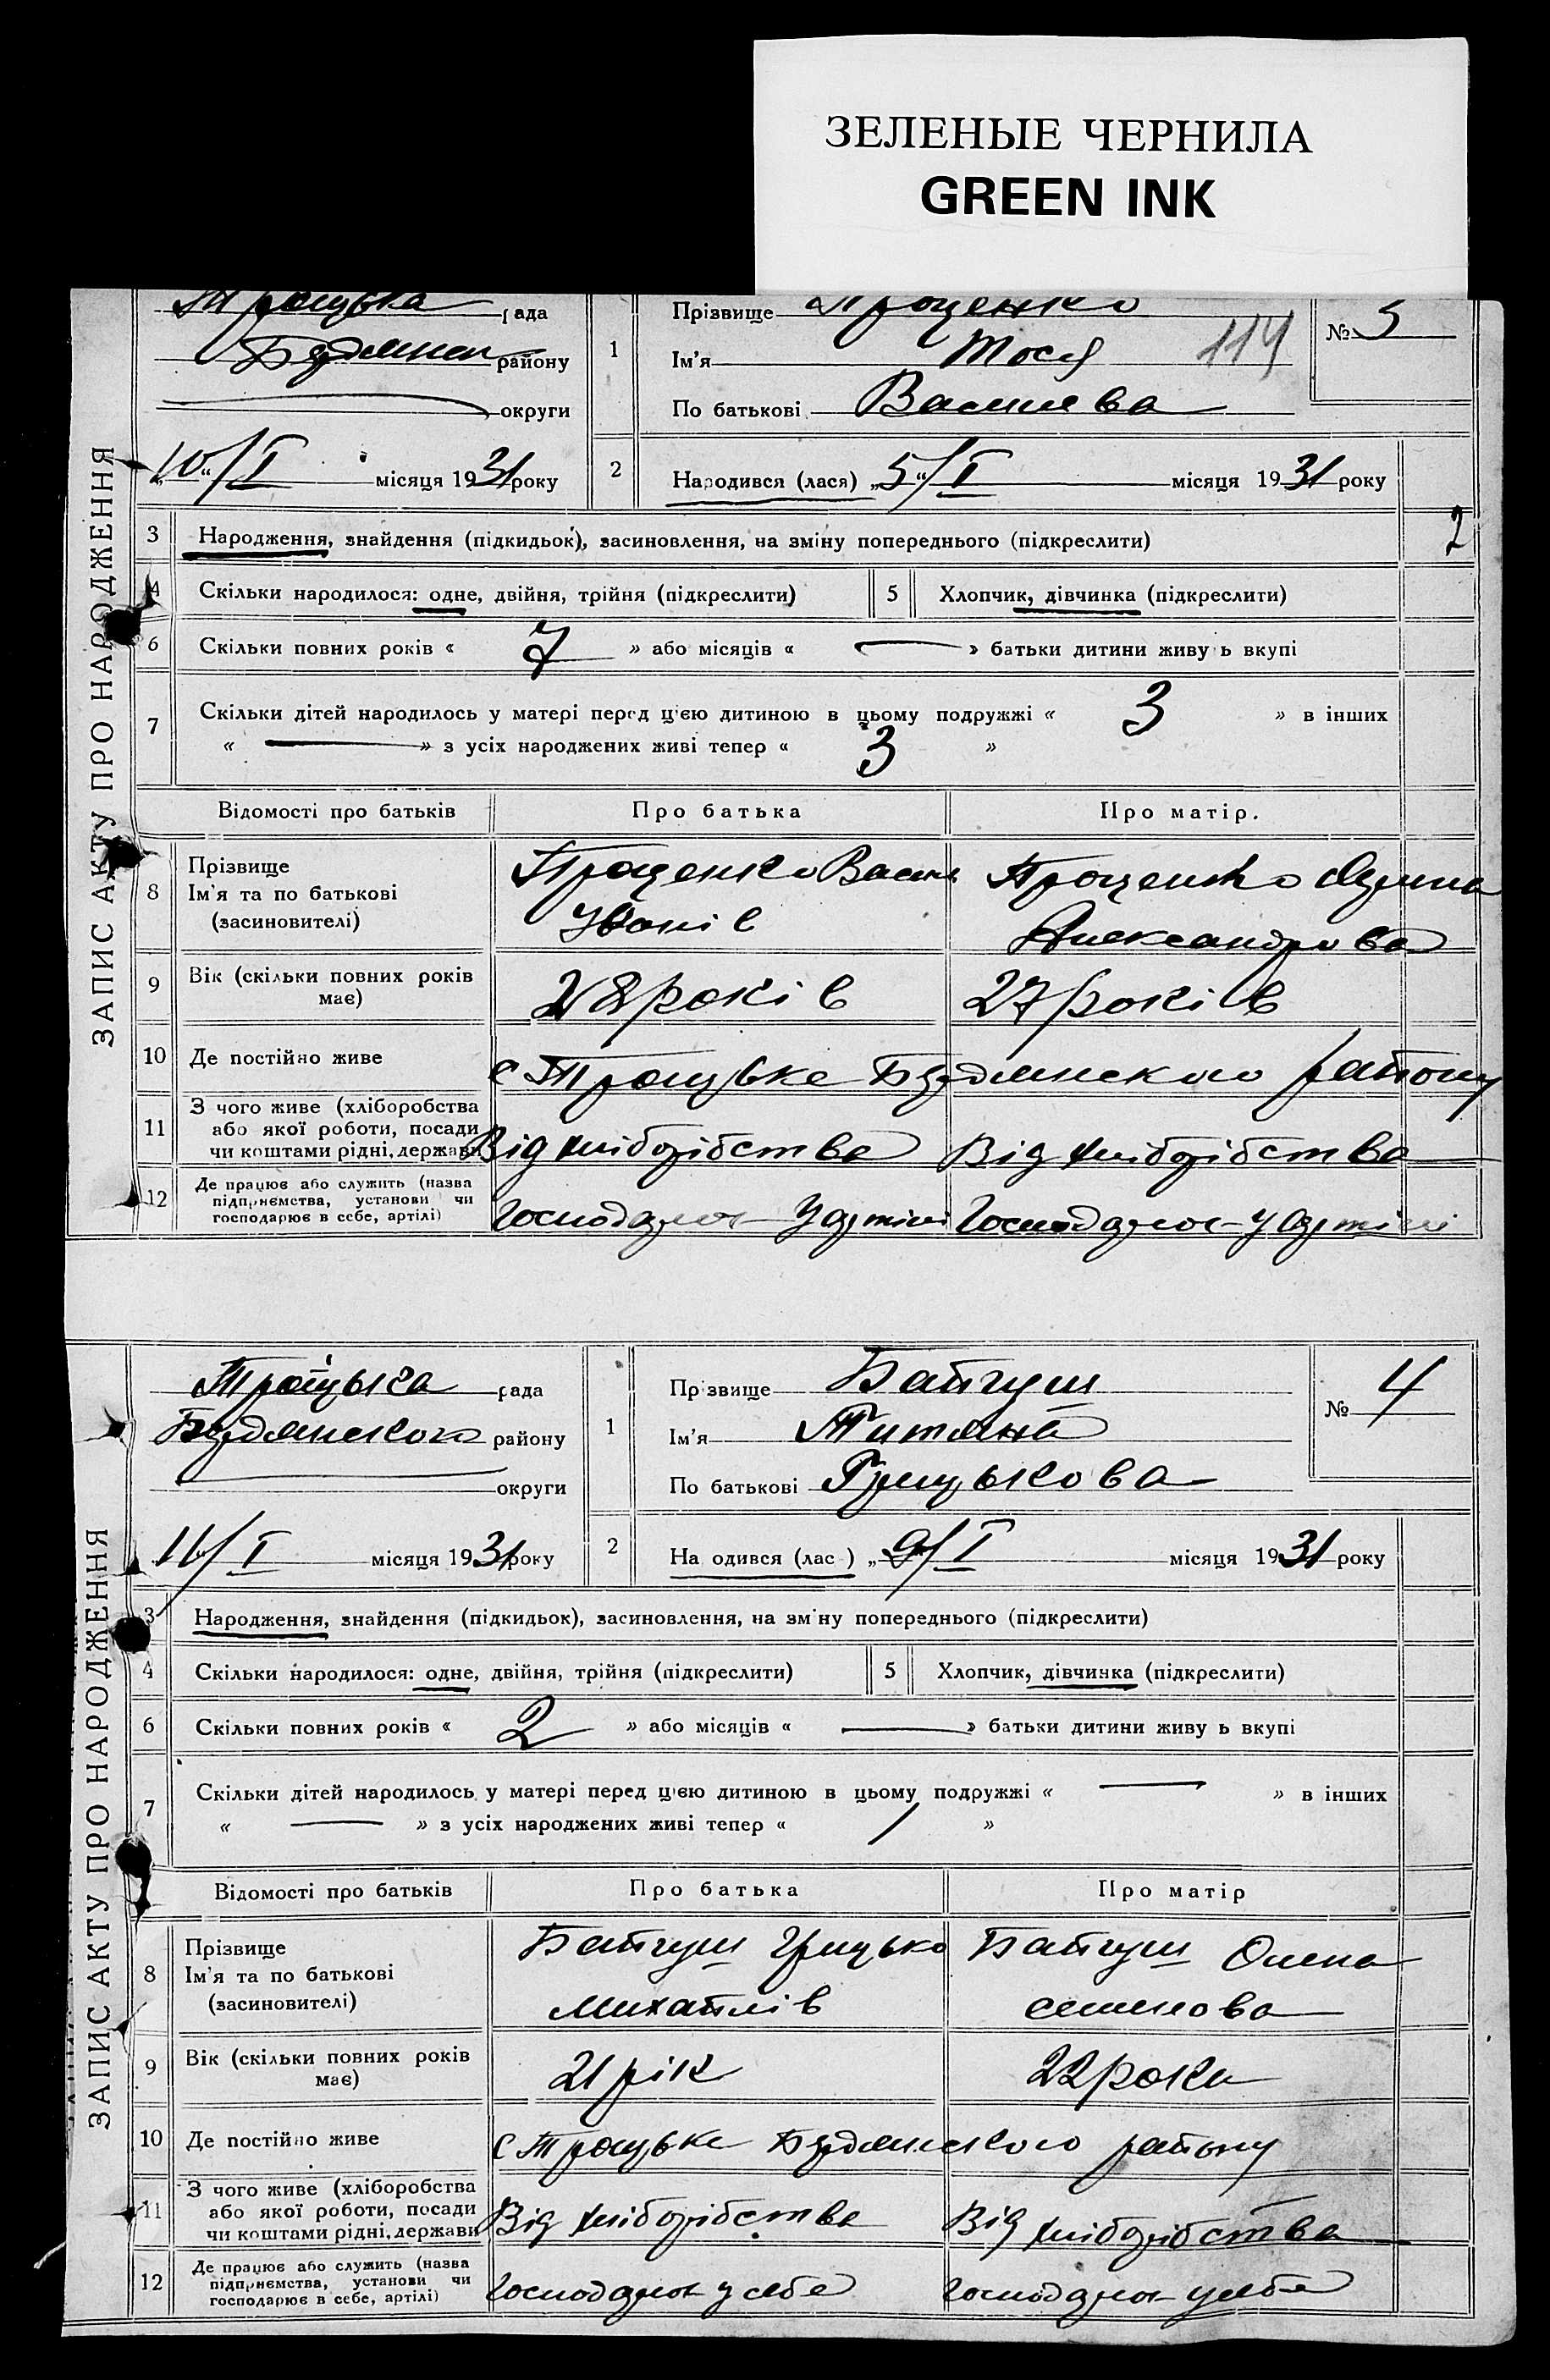 ЗЕЛЕНЫЕ ЧЕРНИЛА
GREEN INK
Троцька рада
району
округи
1
Прізвище Проценко
Ім'я Тося
По батькові Василева
114
№
ЗАПИС АКТУ ПРО НАРОДЖЕННЯ
„10“/I місяця 1931 року
2 Народився (лася) „5“/I місяця 1931 року
2
3 Народження, знайдення (підкидьок), засиновлення, на зміну попереднього (підкреслити)
4 Скільки народилося: одне, двійня, трійня (підкреслити) 5 Хлопчик, дівчинка (підкреслити)
6 Скільки повних років « 7 » або місяців « — » батьки дитини живу ь вкупі
7 Скільки дітей народилось у матері перед цією дитиною в цьому подружжі « 3 » в інших
« — » з усіх народжених живі тепер « 3 »
Відомості про батьків Про батька Про матір.
8 Прізвище
Ім'я та по батькові
(засиновителі)
Проценко Васил
Іванів
Проценко
Александрова
9 Вік (скільки повних років
має)
28 років 27 років
10 Де постійно живе с Троцьке Бердянского району
11 З чого живе (хліборобства
або якої роботи, посади
чи коштами рідні, держави
Від хліборібства Від хліборібства
12 Де працює або служить (назва
підприємства, установи чи
господарює в себе, артілі)
Господарює у артілі Господарює у артілі
Троцька рада
Бердянского району
округи
1
Пр звище Байгуш
Ім'я Титяна
По батькові Грицькова
№ 4
ЗАПИС АКТУ ПРО НАРОДЖЕННЯ
11/I місяця 1931 року
2 На одився (лас ) „9/I місяця 1931 року
3 Народження, знайдення (підкидьок), засиновлення, на зм ну попереднього (підкреслити)
4 Скільки народилося: одне, двійня, трійня (підкреслити) 5 Хлопчик, дівчинка (підкреслити)
6 Скільки повних років « 2 » або місяців « — » батьки дитини живу ь вкупі
7 Скільки дітей народилось у матері перед цією дитиною в цьому подружжі « — » в інших
« — » з усіх народжених живі тепер « 1 »
Відомості про батьків Про батька Про матір
8 Прізвище
Ім'я та по батькові
(засиновителі)
Байгуш Грицько
Михайлів
Байгуш Олена
семенова
9 Вік (скільки повних років
має)
21 рік 22 роки
10 Де постійно живе с Троцьке Бердянского району
11 З чого живе (хліборобства
або якої роботи, посади
чи коштами рідні, держави
Від хліборібства Від хліборібства
12 Де працює або служить (назва
підприємства, установи чи
господарює в себе, артілі)
Господарює у себе Господарює у себе